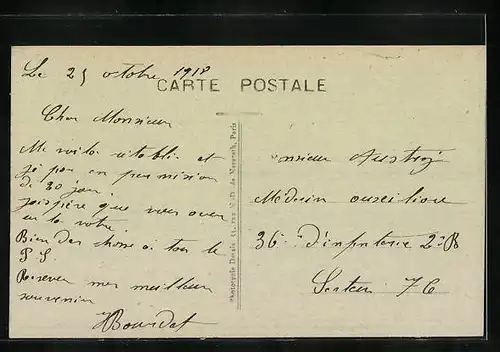 Le 25 octobre 1918
CARTE POSTALE
Cher Monsieur
Me voila établi et
j'ai pas eu permission
de 20 jour.
j'espère que vous avez
eu la votre.
Bien des chose a tous le
P S
Recevez mes meilleur
souvenir
HBourdat
Phototypie Daudé 31, rue N.-D. de Nazareth, Paris
Monsieur
Médecin auxiliaire
36e d'infanterie 2e B
Secteur 76